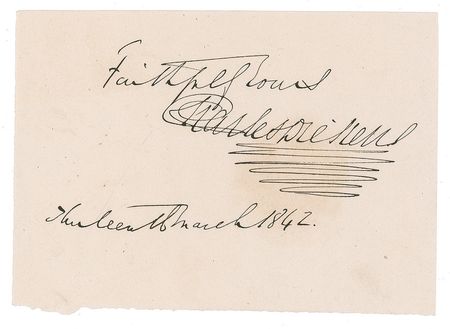 Faithfully Yours
Charles Dickens
Nineteenth March 1842.